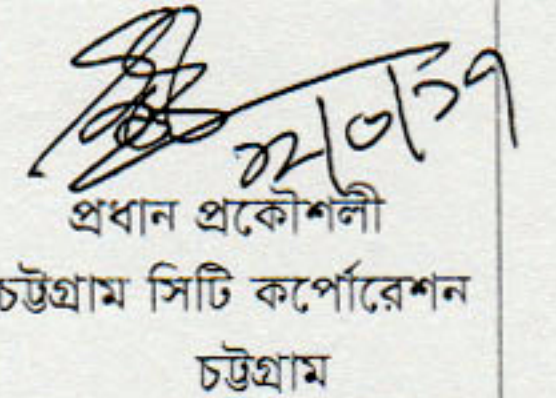 প্রধান প্রকৌশলী
চট্টগ্রাম সিটি কর্পোরেশন
চট্টগ্রাম